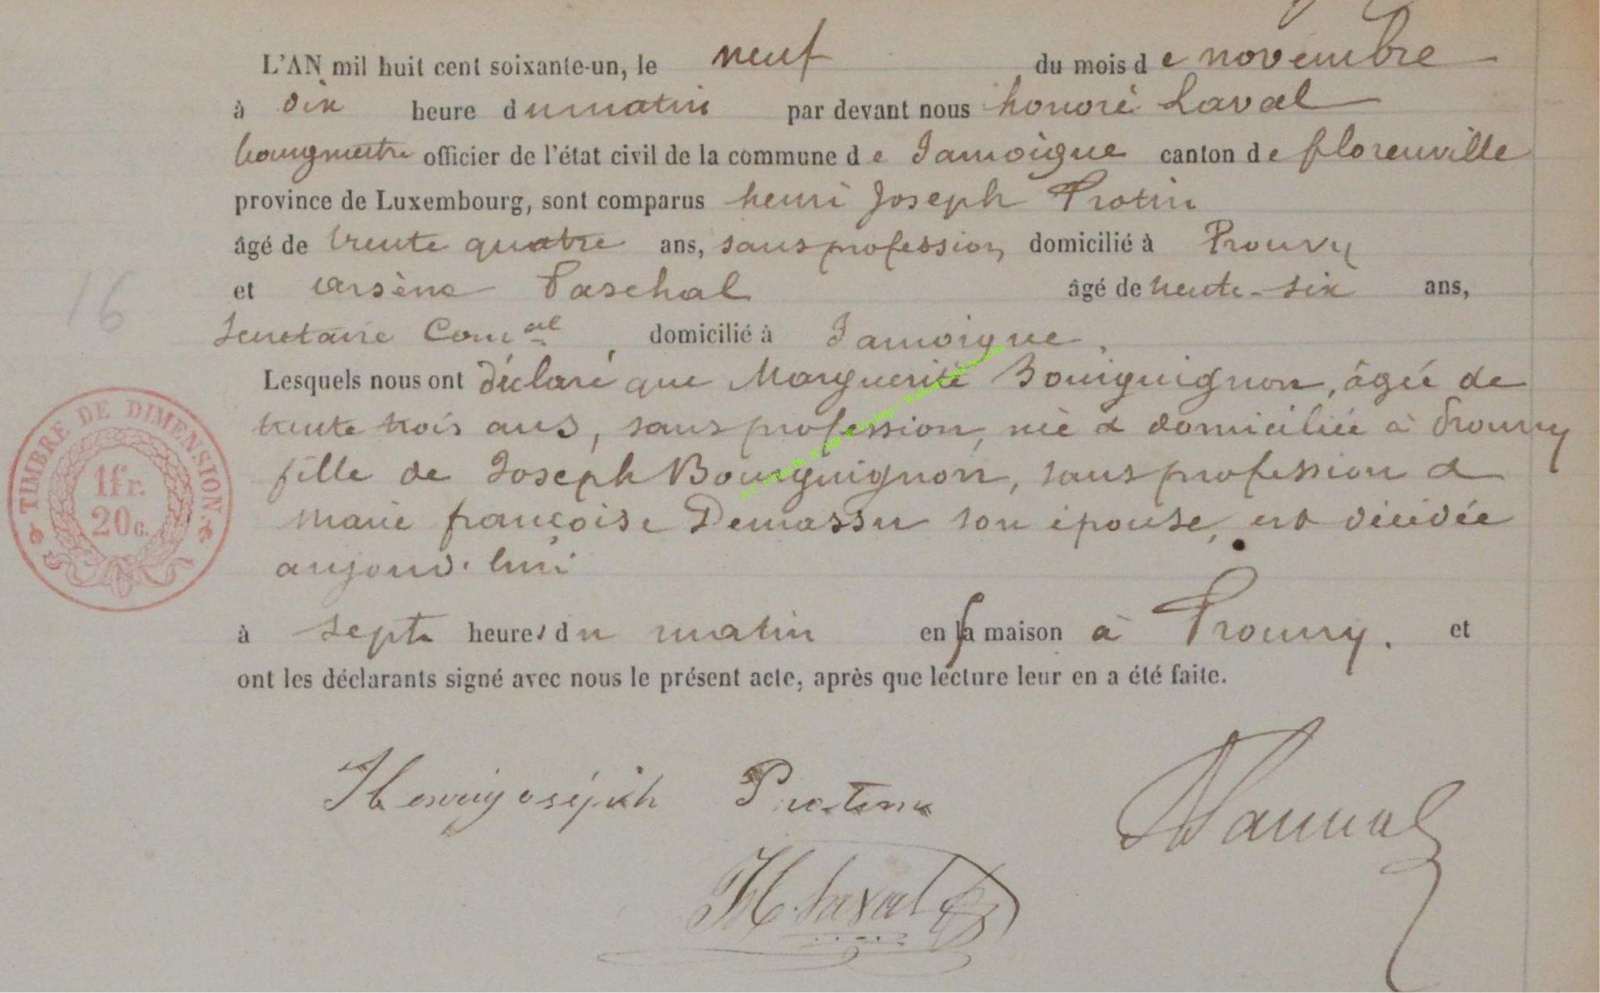 L'AN mil huit cent soixante-un, le neuf du mois de novembre
à dix heure du matin par devant nous honoré Laval
bourgmestre officier de l'état civil de la commune de Jamoigne canton de florenville
province de Luxembourg, sont comparus henri Joseph Protin
âgé de trente quatre ans, sans profession domicilié à Prouvy
et arsène Paschal âgé de trente-six ans,
Secretaire Com.al, domicilié à Jamoigne.
Lesquels nous ont déclaré que Marguerite Bourguignon, âgée de
trente trois ans, sans profession, née & domiciliée à Prouvy
fille de Joseph Bourguignon, sans profession &
marie françoise Demassu son épouse, est décédée
aujourd'hui
à sept heures du matin en sa maison à Prouvy. et
ont les déclarants signé avec nous le présent acte, après que lecture leur en a été faite.
Henri joséph Protin
H. Laval
16
TIMBRE DE DIMENSION
1 fr.
20 c.